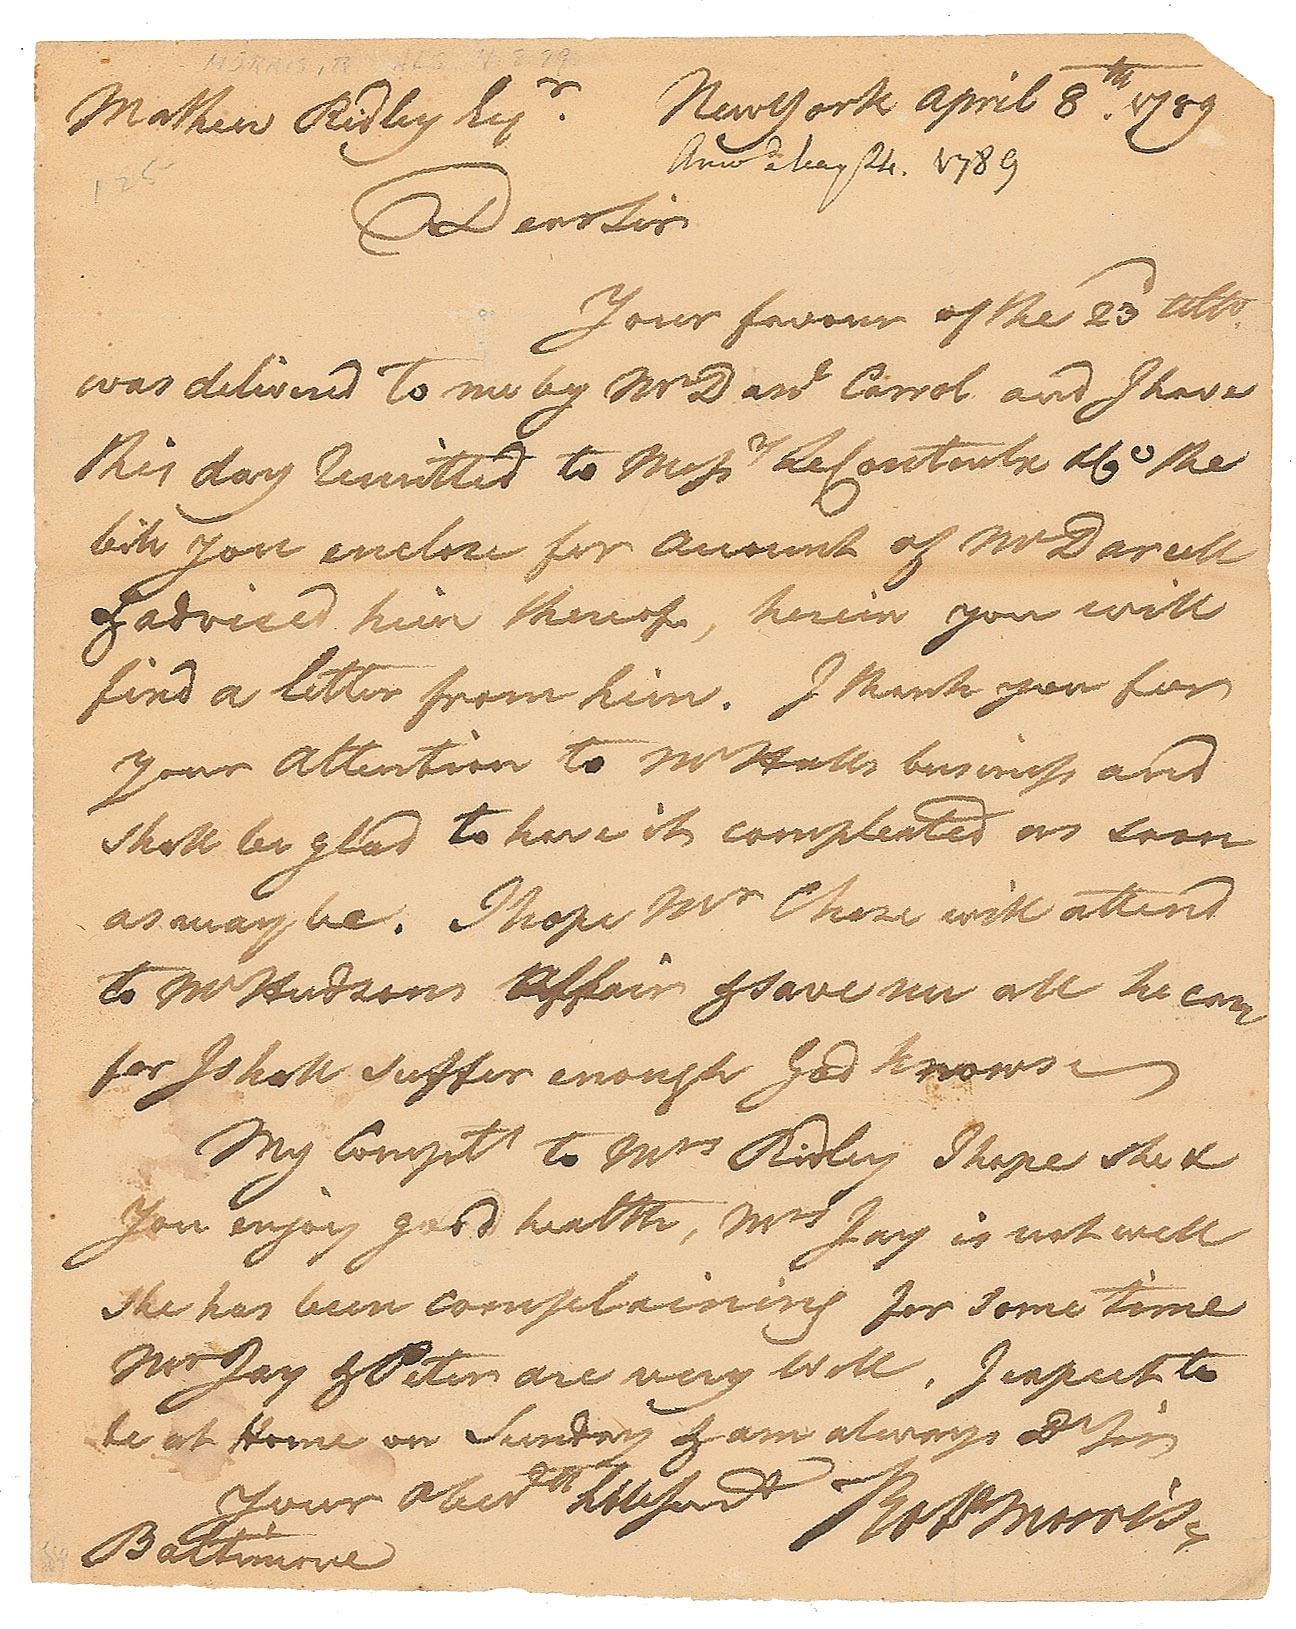 MORRIS, R ALS 4.8.89
Mathew Ridley Esqr. New York April 8th. 1789
Answd May 24. 1789
125
Dear Sir
Your favour of the 23d Ulto.
was delivered to me by Mr Danl Carrol and I have
this day remitted to Messrs LeCouteulx & Co the
bill you enclose for account of Mr Darcell
& advised him thereof, herein you will
find a letter from him. I thank you for
your attention to Mr Halls business and
shall be glad to have it compleated as soon
as may be. I hope Mr Chase will attend
to Mr Hudsons Affair & save me all he can
for I shall suffer enough God knows
My Compts to Mrs Ridley I hope she &
You enjoy good health, Mrs Jay is not well
she has been complaining for some time
Mr Jay & Peter are very well. I expect to
be at Home on Sunday & am always Dr Sir
Your Obedt hble Servt Robt Morris
Baltimore